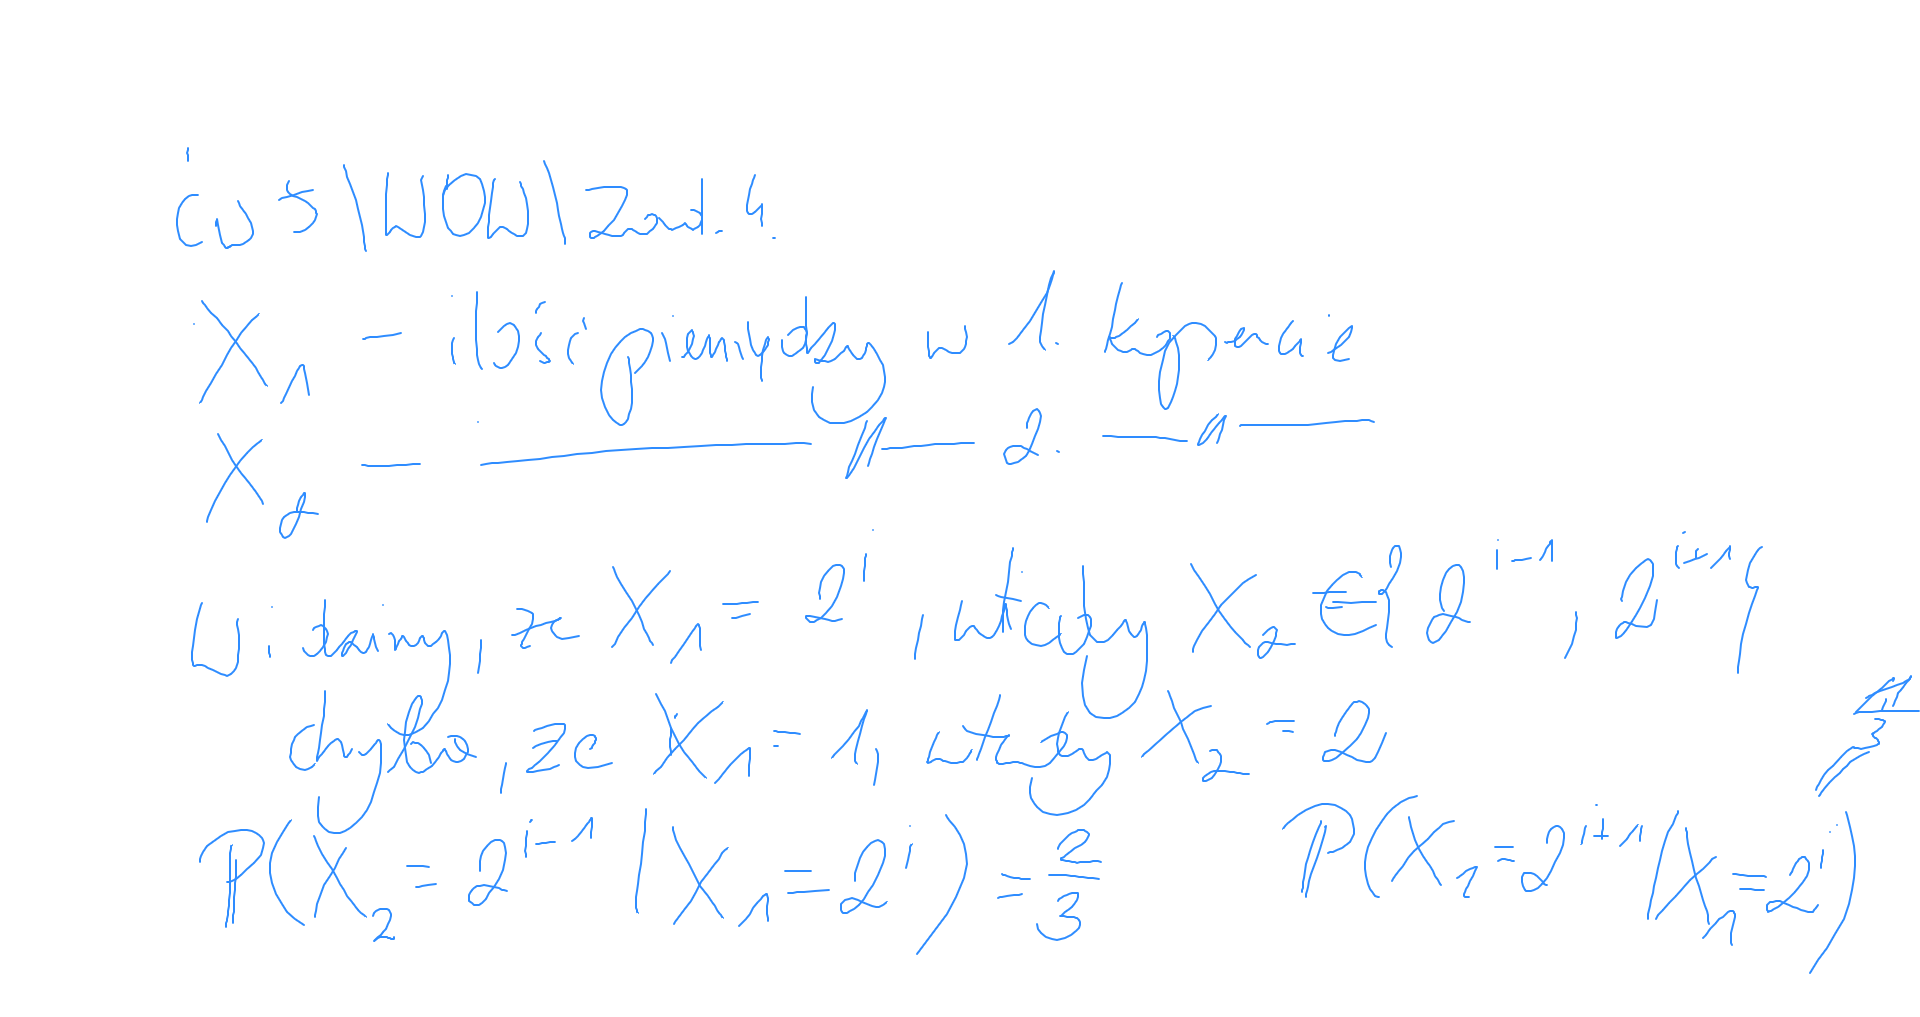 Ćw 5 \ WOW \ Zad. 4.
X₁ - ilość pieniędzy w 1. kopercie
X₂ - ——— 〃 —— 2. —— 〃 ———
Widzimy, że X₁ = 2^i, wtedy X₂ ∈ {2^{i-1}, 2^{i+1}}
chyba, że X₁ = 1, wtedy X₂ = 2
P(X₂ = 2^{i-1} | X₁ = 2^i) = 2/3 P(X₂ = 2^{i+1} | X₁ = 2^i) = 1/3